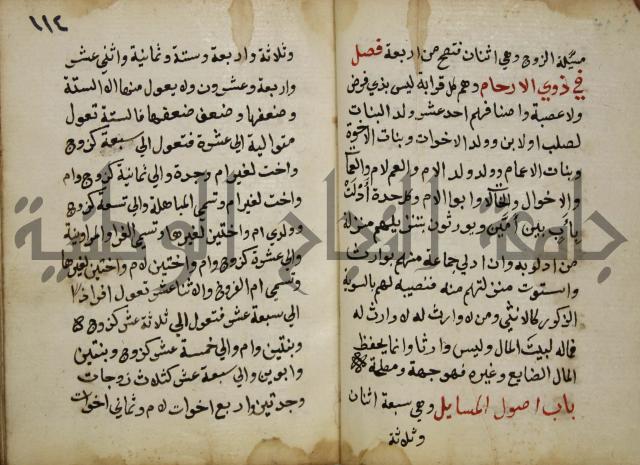 مسئلة الزوج وهي اثنان فتصح من اربعة فصل
في ذوي الارحام وهم كل قرابة ليس بذي فرض
ولا عصبة واصنافهم احد عشر ولد البنات
لصلب او لابن وولد الاخوات وبنات الاخوة
وبنات الاعمام وولد ولد الام والعم لام والعمات
والاخوال والخالات وابو الام وكل جدة أدلت
بأب بين أمين ويورثون بتنزيلهم منزلة
من ادلوا به وان ادلى جماعة منهم بوارث
واستوت منزلتهم منه فنصيبه لهم بالسوية
الذكور كالانثى ومن لا وارث له لا وارث له
فماله لبيت المال وليس وارثا وانما يحفظ
المال الضايع وغيره فهو جهة ومصلحة
باب اصول المسايل وهي سبعة اثنان
وثلاثة
١١٤
وثلاثة واربعة وستة وثمانية واثنى عشر
واربعة وعشرون ولا يعول منها الا الستة
وضعفها وضعف ضعفها فالستة تعول
متوالية الى عشرة فتعول الى سبعة كزوج
واخت لغير ام وجدة والى ثمانية كزوج وام
واخت لغير ام وتسمى المباهلة والى تسعة كزوج
وولدي ام واختين لغيرها وتسمى الغرا والمروانية
والى عشرة كزوج وام واختين لام واختين لغيرها
وتسمى ام الفروخ والاثنا عشر تعول افرادا
الى سبعة عشر فتعول الى ثلاثة عشر كزوج
وبنتين وام والى خمسة عشر كزوج وبنتين
وابوين والى سبعة عشر كثلاث زوجات
وجدتين واربع اخوات لام وثماني اخوات
جامعة النجاح الوطنية